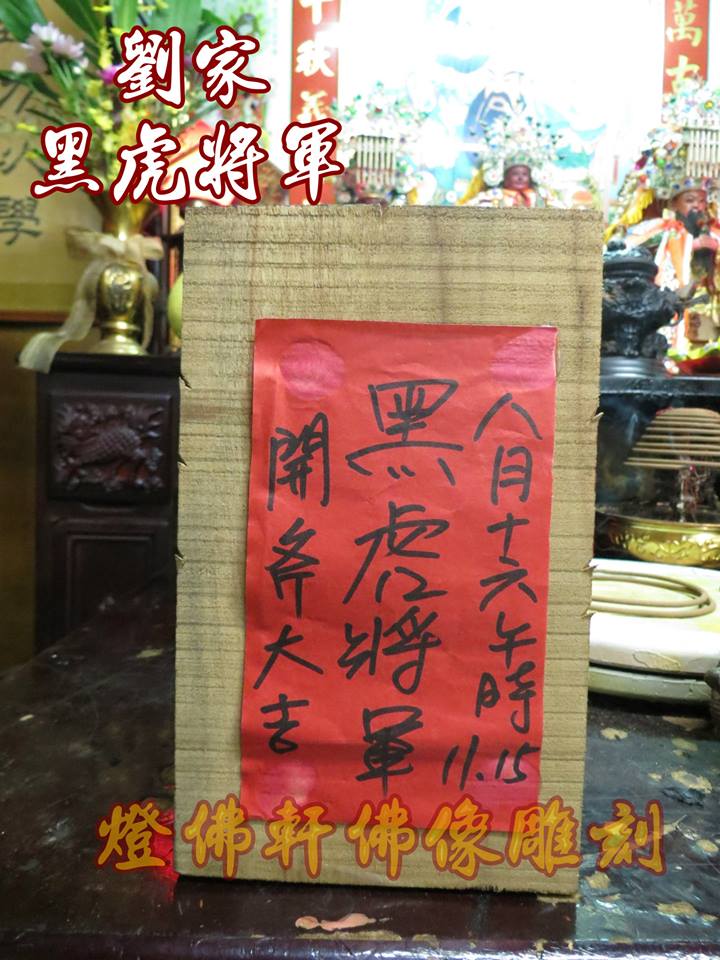 劉家
黑虎將軍
千秋
萬古
學
八月十六午時 11.15
黑虎將軍
開斧大吉
燈佛軒佛像雕刻